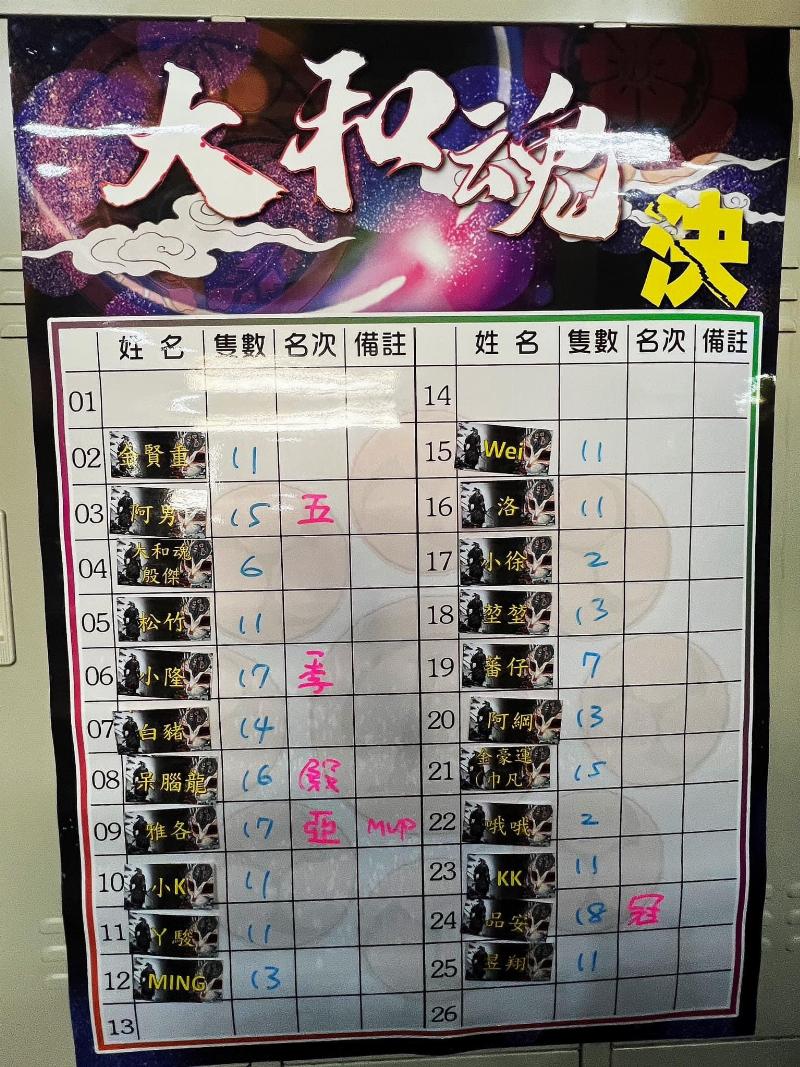 大和魂
決
姓名 隻數 名次 備註 姓名 隻數 名次 備註
01 14
02 金賢重 11 15 Wei 11
03 阿男 15 五 16 洛 11
04 大和魂 殷傑 6 17 小徐 2
05 松竹 11 18 堃堃 13
06 小隆 17 季 19 蕃仔 7
07 白豬 14 20 阿綱 13
08 呆腦龍 16 殿 21 金豪運 (巾凡) 15
09 雅各 17 亞 MVP 22 哦哦 2
10 小K 11 23 KK 11
11 丫駿 11 24 品安 18 冠
12 MING 13 25 昱翔 11
13 26